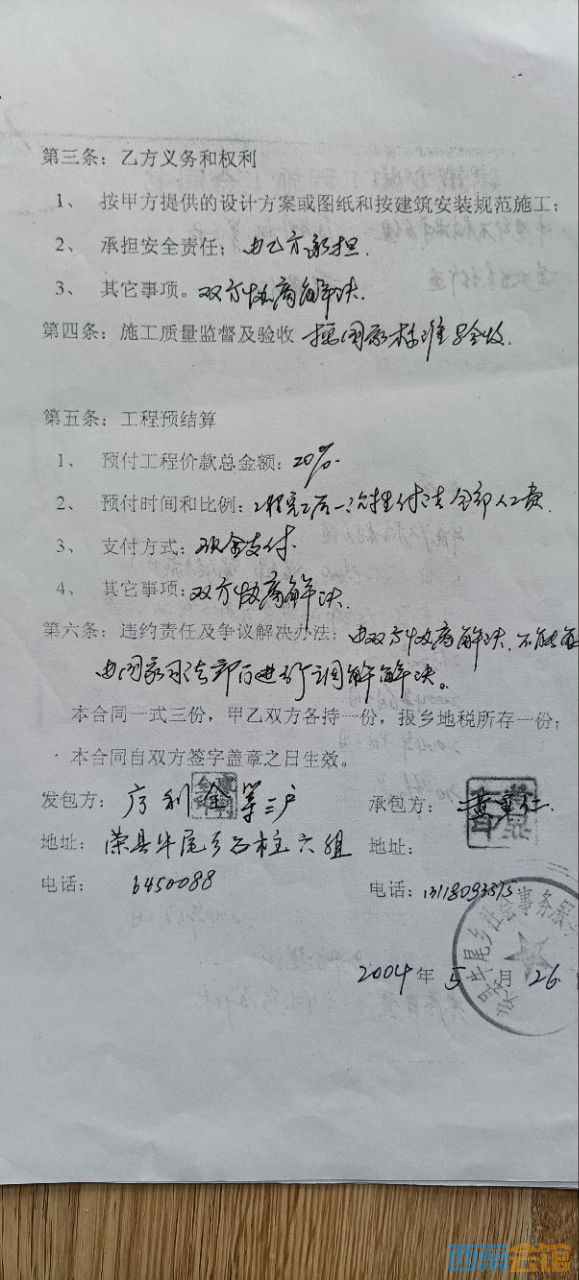 第三条：乙方义务和权利
1、 按甲方提供的设计方案或图纸和按建筑安装规范施工；
2、 承担安全责任；由乙方承担.
3、 其它事项。双方协商解决.
第四条：施工质量监督及验收 按国家标准验收.
第五条：工程预结算
1、 预付工程价款总金额：20%.
2、 预付时间和比例：工程完工后一次性付清全部人工费.
3、 支付方式：现金支付.
4、 其它事项：双方协商解决.
第六条：违约责任及争议解决办法：由双方协商解决.不能
由国家司法部门进行调解解决。
本合同一式三份，甲乙双方各持一份，报乡地税所存一份；
本合同自双方签字盖章之日生效。
发包方： 利金等三户
承包方：
地址： 荣县牛尾乡石柱六组
地址：
电话： 6450088
电话：
2004年5月26
牛尾乡社会事务服
西祠会馆